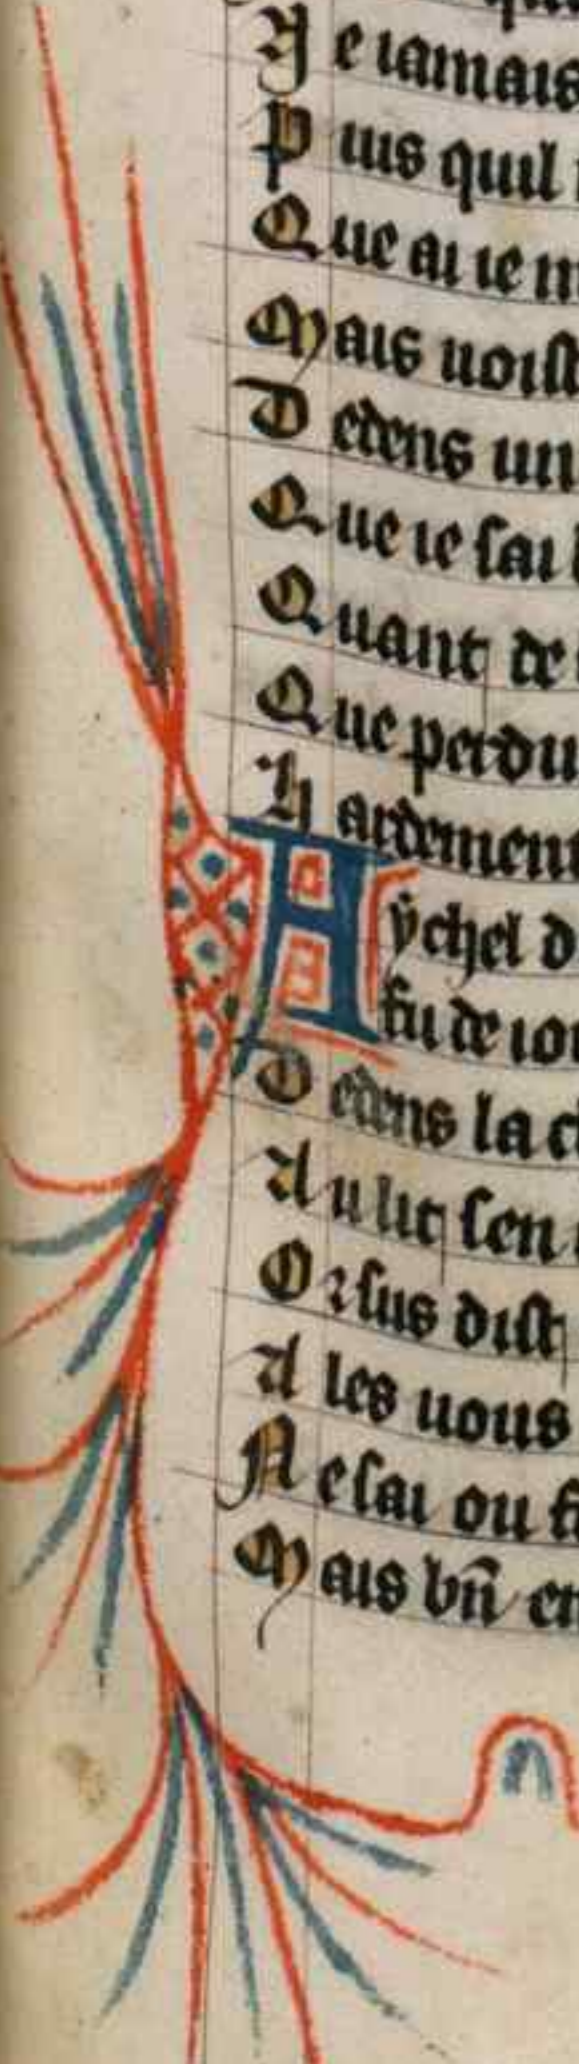 Ne iamais
Puis quil
Que ai ie m
Mais uoist
Dedens un
Que ie sai
Quant de
Que perdu
hardement
Aychel d
fu de ior
Dedens la c
Au lit sen
Or sus dist
Ales uous
Ne sai ou
Mais bn̄ en